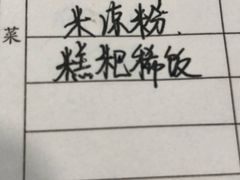 米凉粉、
菜
糕粑稀饭